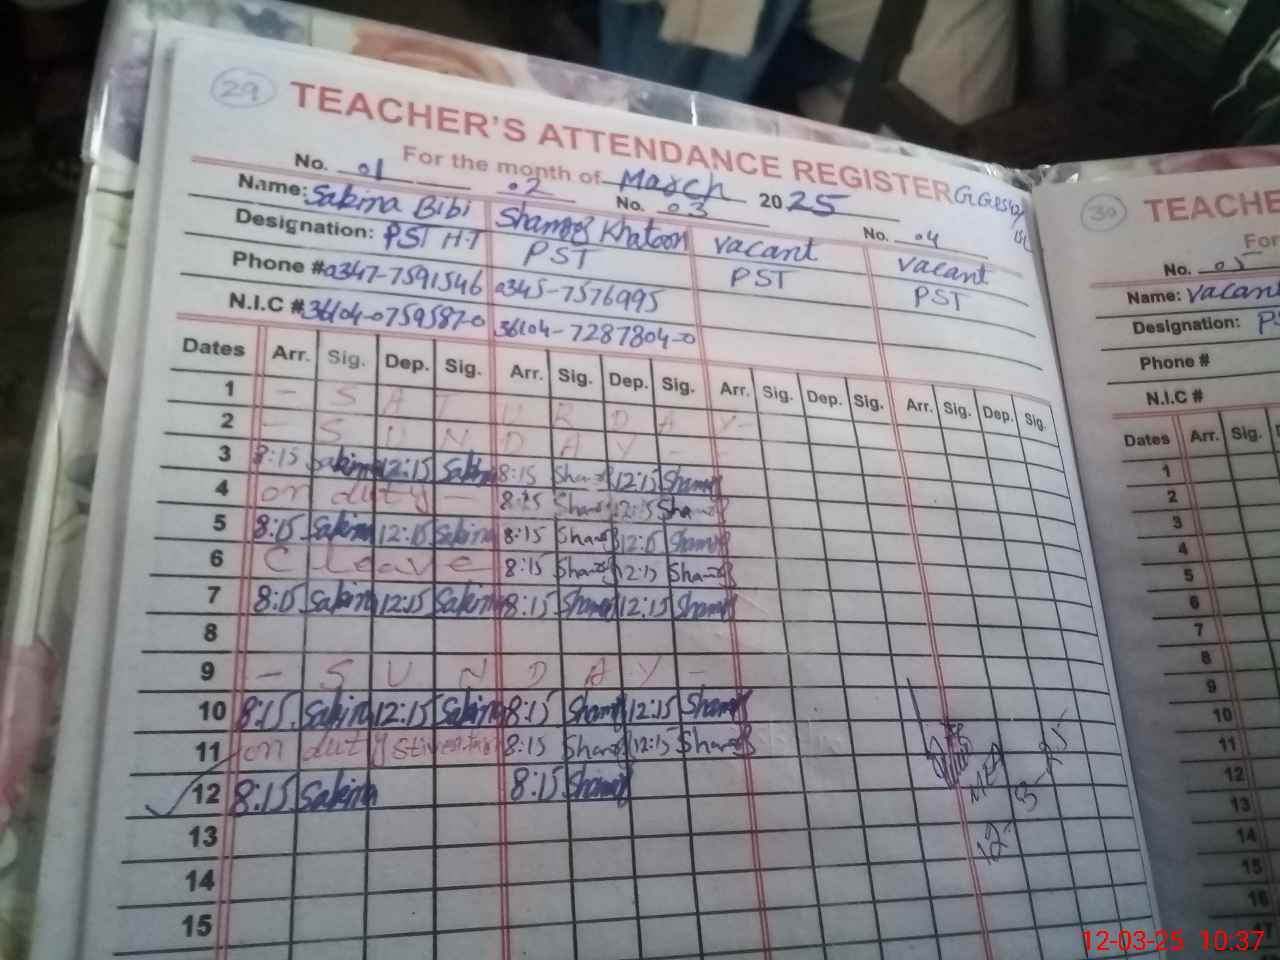 29
TEACHER'S ATTENDANCE REGISTER
For the month of March 2025
No. 01 02 No. 03 No. 04
Name: Sakina Bibi Shamoz Khatoon vacant vacant
Designation: PST H-T PST PST PST
Phone # 0347-7591546 0345-7576995
N.I.C # 36104-0759587-0 36104-7287804-0
Dates Arr. Sig. Dep. Sig. Arr. Sig. Dep. Sig. Arr. Sig. Dep. Sig. Arr. Sig. Dep. Sig.
1 - S A T U R D A Y -
2 - S U N D A Y - -
3 8:15 Sakina 12:15 Sakina 8:15 Shamoz 12:15 Shamoz
4 on duty - 8:15 Shamoz 12:15 Shamoz
5 8:15 Sakina 12:15 Sakina 8:15 Shamoz 12:15 Shamoz
6 C leave 8:15 Shamoz 12:15 Shamoz
7 8:15 Sakina 12:15 Sakina 8:15 Shamoz 12:15 Shamoz
8
9 - S U N D A Y -
10 8:15 Sakina 12:15 Sakina 8:15 Shamoz 12:15 Shamoz
11 on duty 8:15 Shamoz 12:15 Shamoz
12 8:15 Sakina 8:15 Shamoz
MEA
12-3-25
13
14
15
30
TEACHE
For
No. 05
Name: vacant
Designation: PS
Phone #
N.I.C #
Dates Arr. Sig.
1
2
3
4
5
6
7
8
9
10
11
12
13
14
15
16
17
12-03-25 10:37